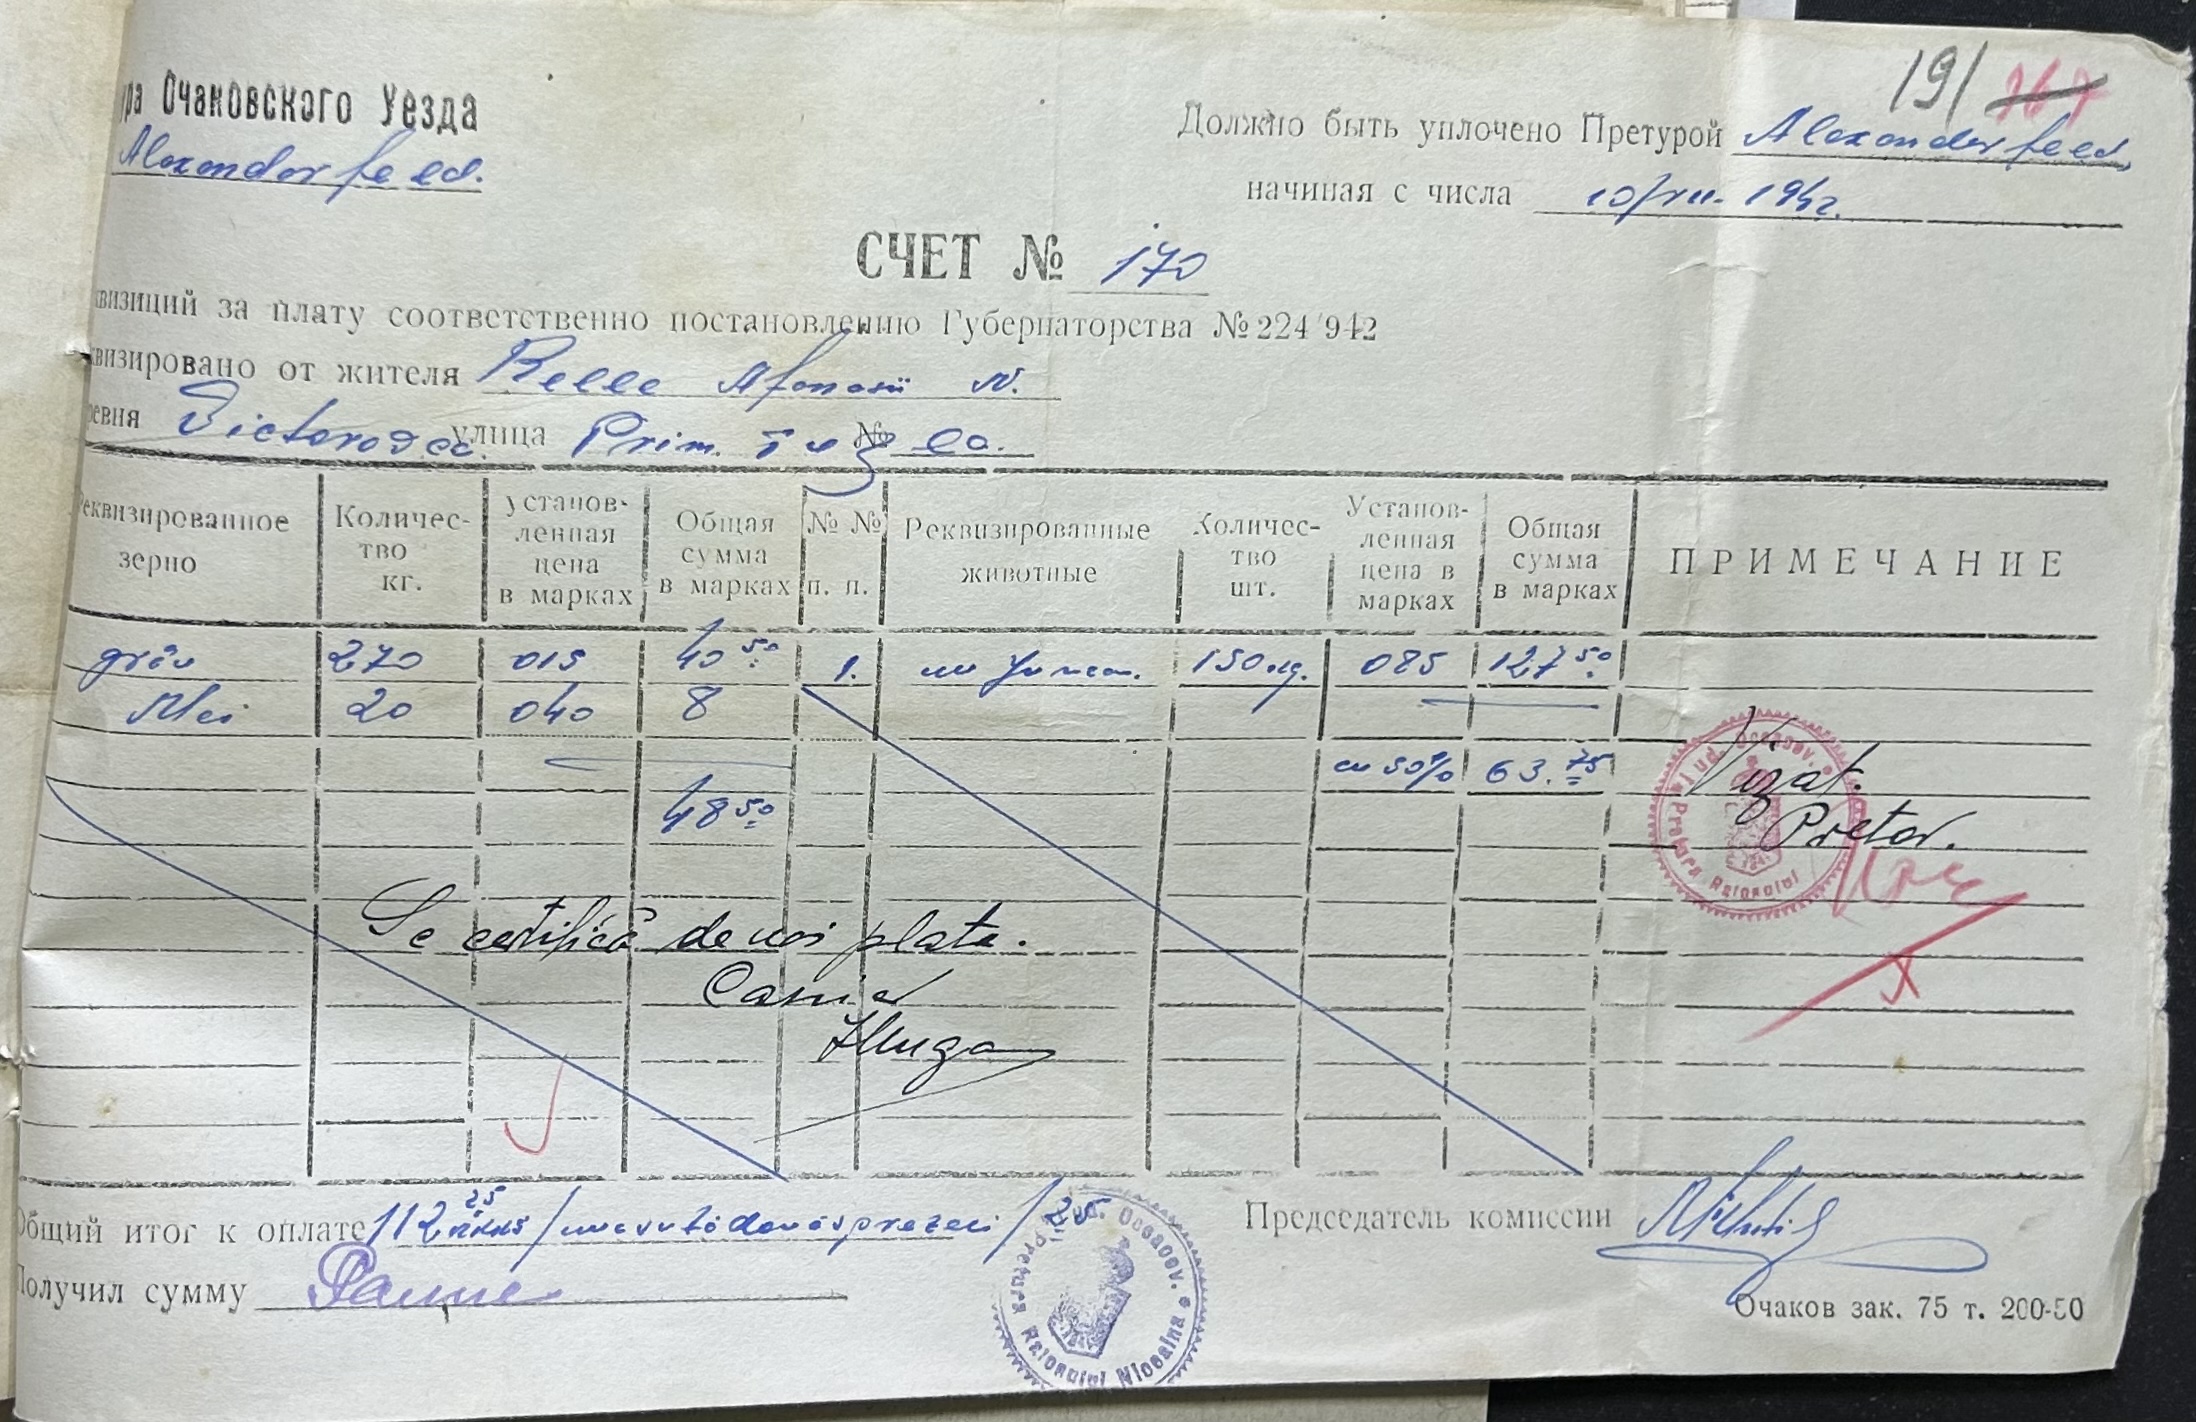 191 167
ра Очаковского Уезда
Alexanderfeed.
Должно быть уплочено Претурой Alexanderfeed,
начиная с числа 10/VII. 1942.
СЧЕТ № 170
квизиций за плату соответственно постановлению Губернаторства № 224/942
квизировано от жителя Relle Afanasii N.
ревня Victorovca. улица Prim. №
Реквизированное зерно Количество кг. установленная цена в марках Общая сумма в марках № № п. п. Реквизированные животные Количество шт. Установленная цена в марках Общая сумма в марках ПРИМЕЧАНИЕ
grâu 270 015 40 50 1. un juncan. 150 kg. 085 127 50
Mei 20 040 8
cu 50% 63.75
48 50
Vizat.
Pretor.
Pretura Raionului Jud. Oceacov.
Se certifică de noi plata.
Casier
Общий итог к оплате 112 25 /unasutădouăsprezeci/25
Председатель комиссии
Получил сумму
Jud. Oceacov. Pretura Raionului
Очаков зак. 75 т. 200-50